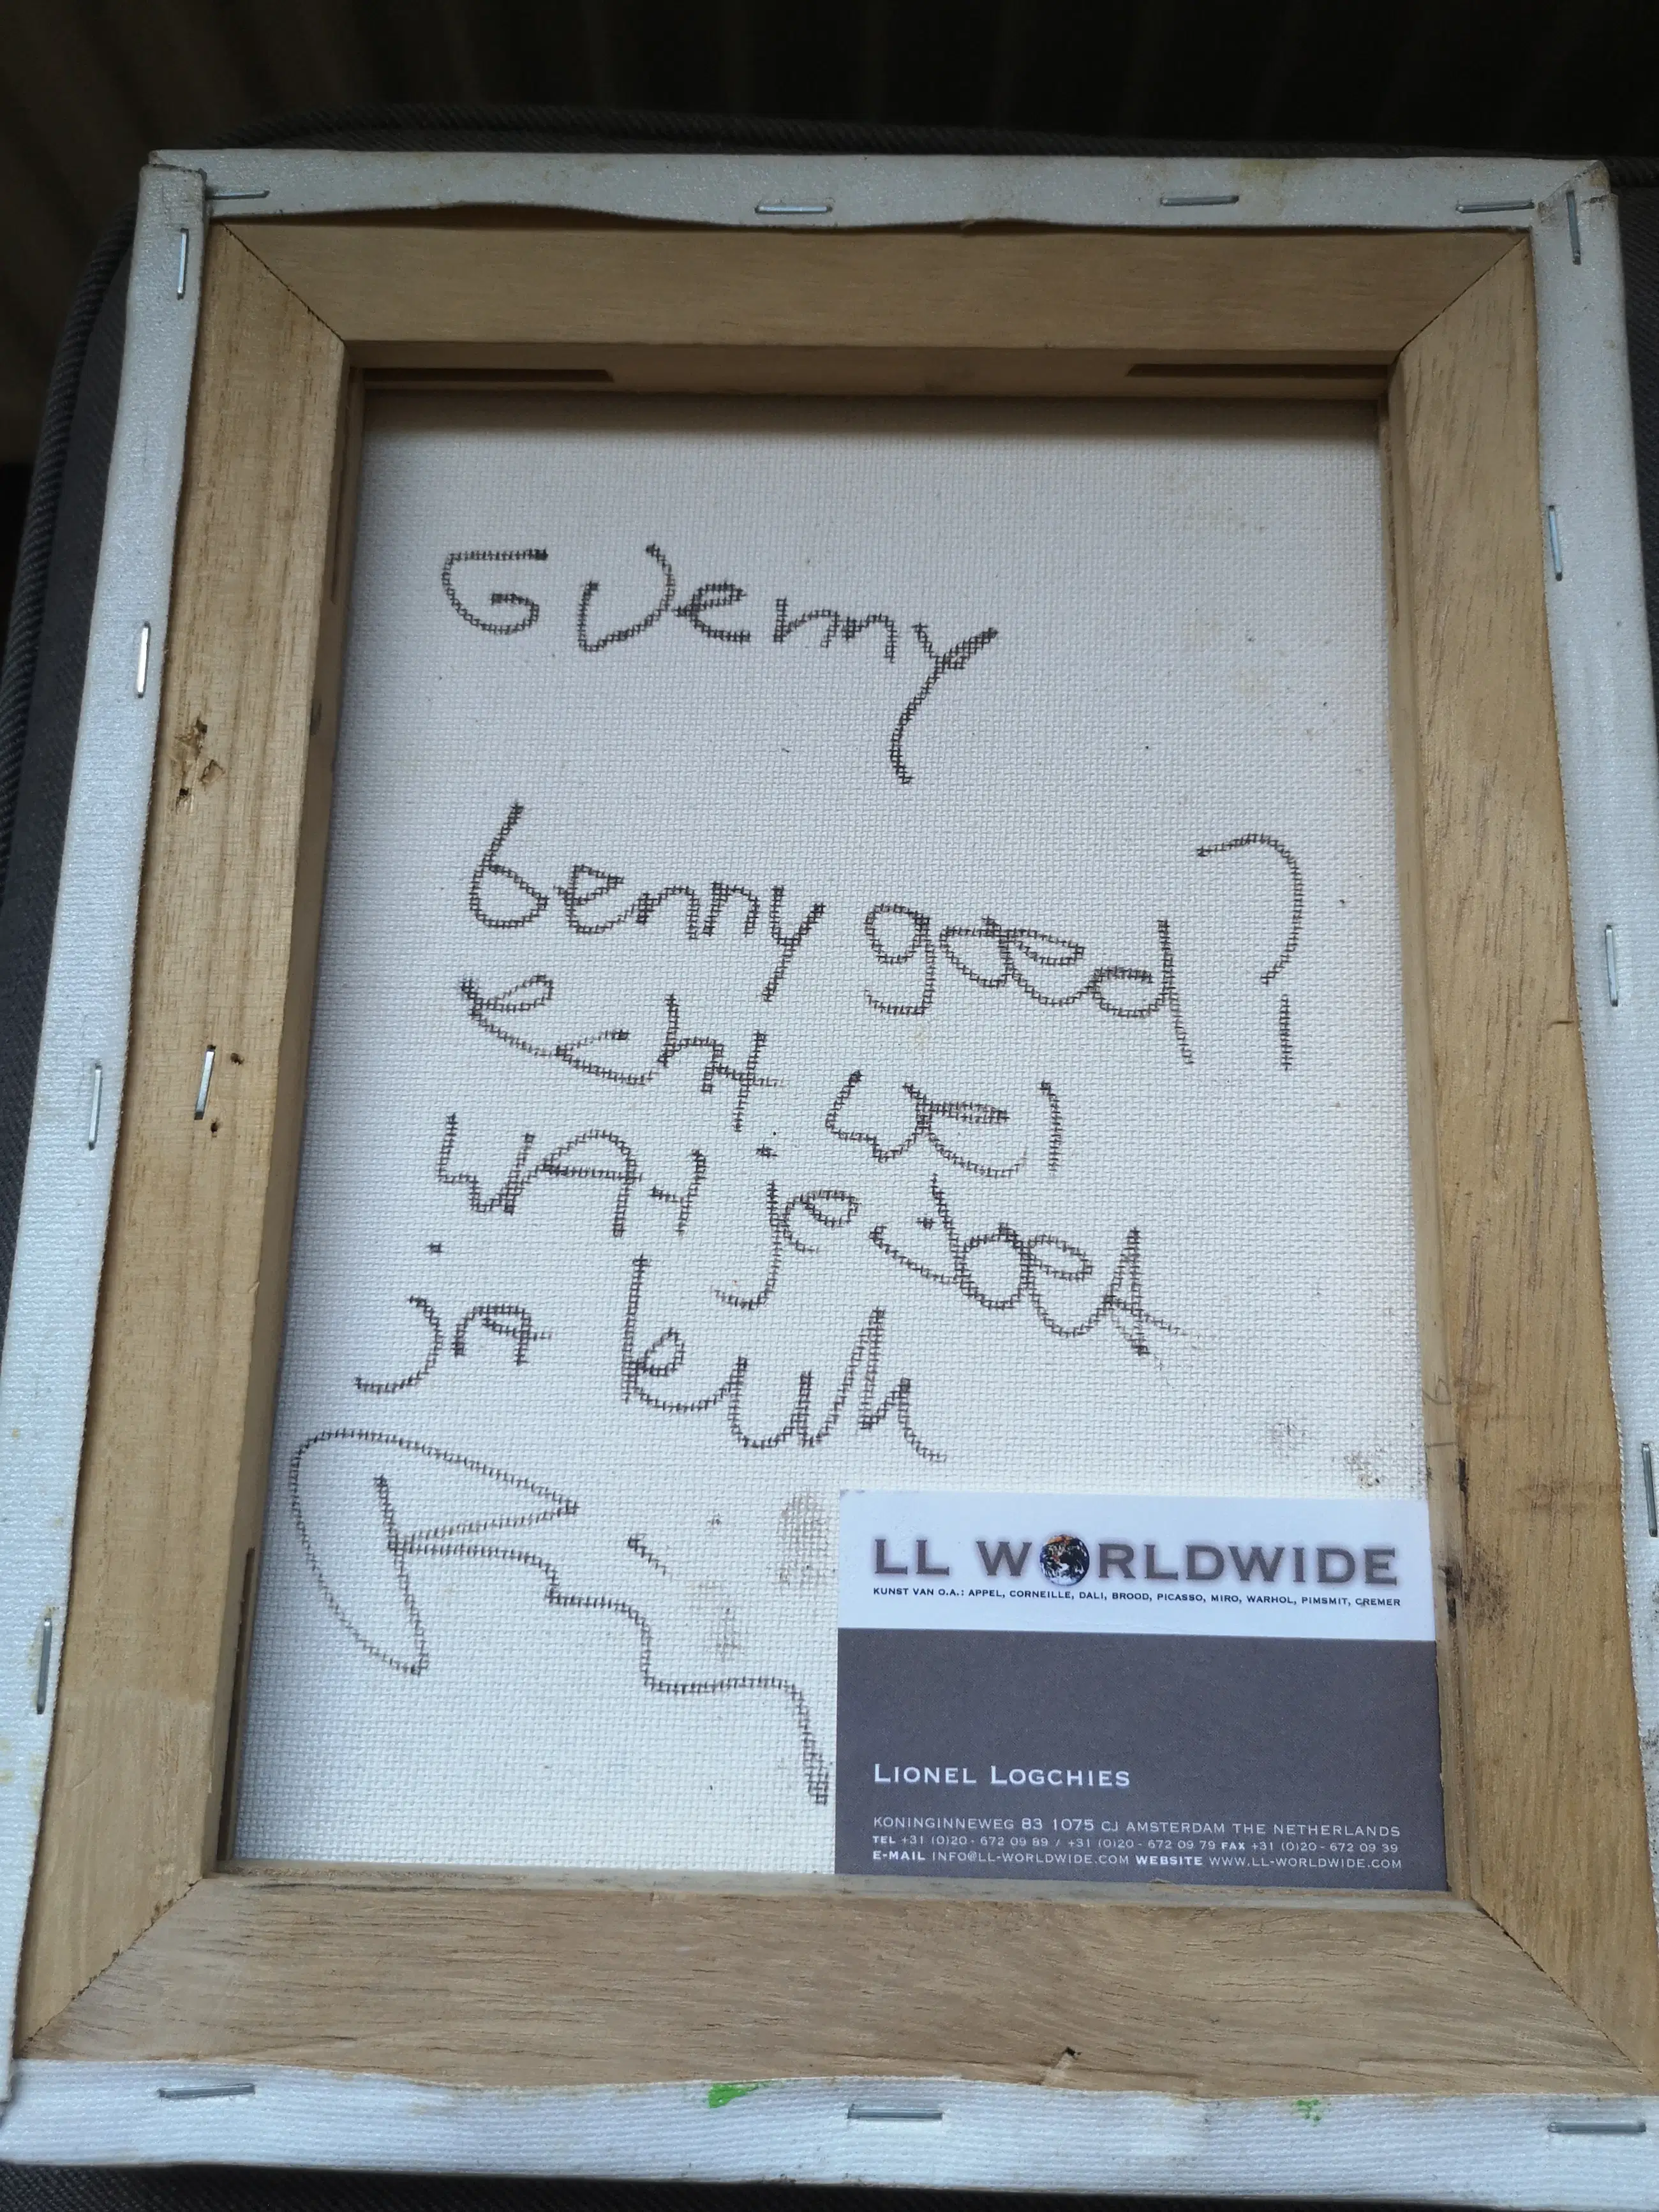 GVenny
benny goed?
echt wel
wAt je doet
ja leuk
LL WORLDWIDE
KUNST VAN O.A.: APPEL, CORNEILLE, DALI, BROOD, PICASSO, MIRO, WARHOL, PIMSMIT, CREMER
LIONEL LOGCHIES
KONINGINNEWEG 83 1075 CJ AMSTERDAM THE NETHERLANDS
TEL +31 (0)20 - 672 09 89 / +31 (0)20 - 672 09 79 FAX +31 (0)20 - 672 09 39
E-MAIL INFO@LL-WORLDWIDE.COM WEBSITE WWW.LL-WORLDWIDE.COM